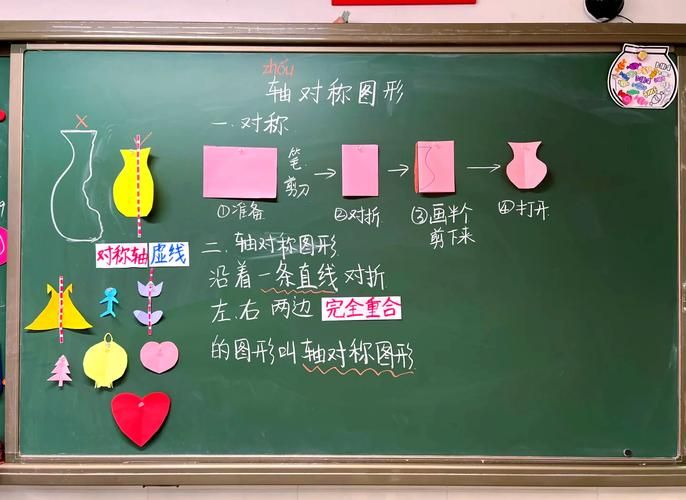 zhóu
轴对称图形
一.对称
笔.
剪刀
①准备
②对折
③画半个
剪下来
④打开
对称轴 虚线
二.轴对称图形
沿着一条直线对折
左.右 两边 完全重合
的图形叫轴对称图形